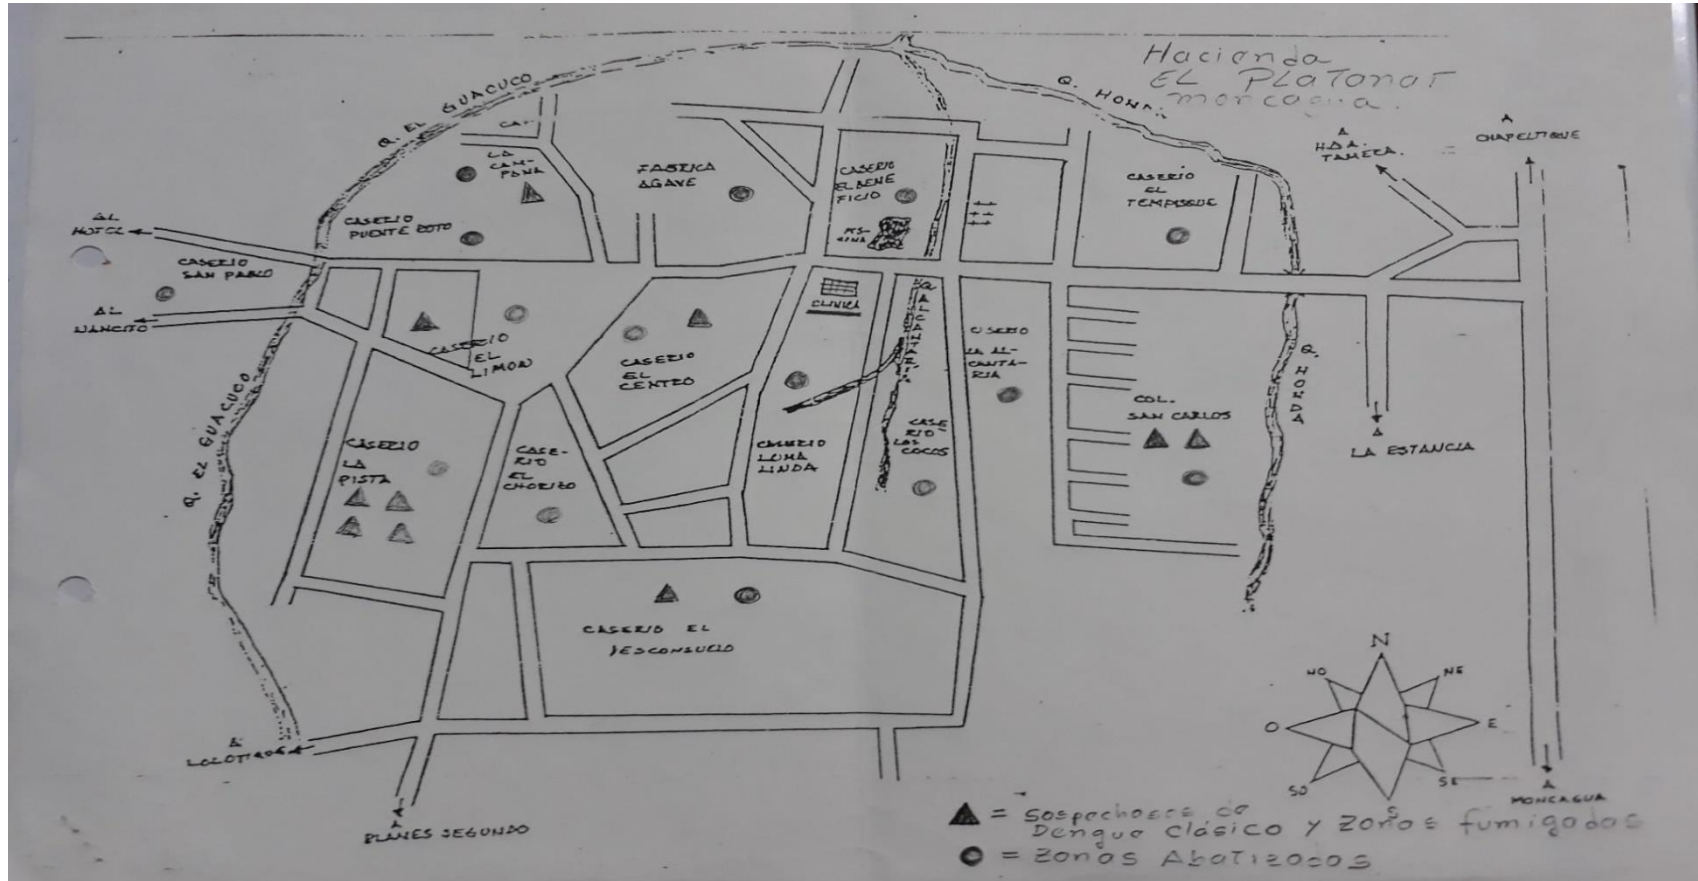 Hacienda
EL PLATANAR
moncagua.
Q. EL GUACUCO
Q. HONA.
A
CHAPELTIQUE
A
HDA.
TAMERA.
CA-
LA
CAM-
PANA
FABRICA
AGAVE
CASERIO
EL BENE
FICIO
PIS-
CINA
CASERIO
EL
TEMPISQUE
CASERIO
PUENTE ROTO
AL
HOTEL
CASERIO
SAN PABLO
AL
NANCITO
CASERIO
EL
LIMON
CASERIO
EL
CENTRO
CLINICA
Q. ALCANTAR
CASERIO
LA AL-
CANTA-
RIA
COL.
SAN CARLOS
Q. HONDA
A
LA ESTANCIA
Q. EL GUACUCO
CASERIO
LA
PISTA
CASE-
RIO
EL
CHORIZO
CASERIO
LOMA
LINDA
CASE
RIO
LOS
COCOS
CASERIO EL
DESCONSUELO
A
LOLOTIQUE
A
PLANES SEGUNDO
N
NO
NE
O
E
SO
SE
S
A
MONCAGUA
= Sospechosos de
Dengue Clásico y zonas fumigadas
= Zonas Abatizadas